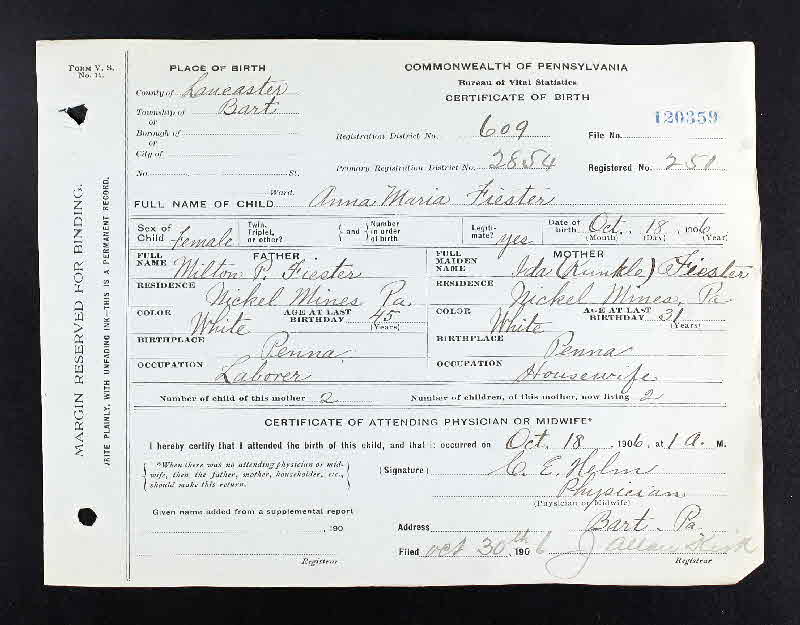 FORM V. S.
No. 11.
MARGIN RESERVED FOR BINDING.
WRITE PLAINLY, WITH UNFADING INK—THIS IS A PERMANENT RECORD.
PLACE OF BIRTH
County of Lancaster
Township of Bart
or
Borough of
or
City of
No. St.
Ward.
COMMONWEALTH OF PENNSYLVANIA
Bureau of Vital Statistics
CERTIFICATE OF BIRTH
120359
Registration District No. 609 File No.
Primary Registration District No. 2854 Registered No. 251
FULL NAME OF CHILD Anna Maria Fiester
Sex of Child Female Twin, Triplet, or other? and Number in order of birth Legiti-mate? yes Date of birth Oct. 18, 1906
(Month) (Day) (Year)
FATHER
FULL NAME Milton P. Fiester
RESIDENCE Nickel Mines Pa.
COLOR White AGE AT LAST BIRTHDAY 45
(Years)
BIRTHPLACE Penna.
OCCUPATION Laborer
MOTHER
FULL MAIDEN NAME Ida (Kunkle) Fiester
RESIDENCE Nickel Mines, Pa
COLOR White AGE AT LAST BIRTHDAY 31
(Years)
BIRTHPLACE Penna
OCCUPATION Housewife
Number of child of this mother 2 Number of children, of this mother, now living 2
CERTIFICATE OF ATTENDING PHYSICIAN OR MIDWIFE*
I hereby certify that I attended the birth of this child, and that it occurred on Oct. 18 1906, at 1 A. M.
*When there was no attending physician or mid-
wife, then the father, mother, householder, etc.,
should make this return.
(Signature) C. E. Helm
Physician
(Physician or Midwife)
Given name added from a supplemental report
, 190
Registrar
Address Bart. Pa
Filed Oct 30th 1906 J Allan
Registrar